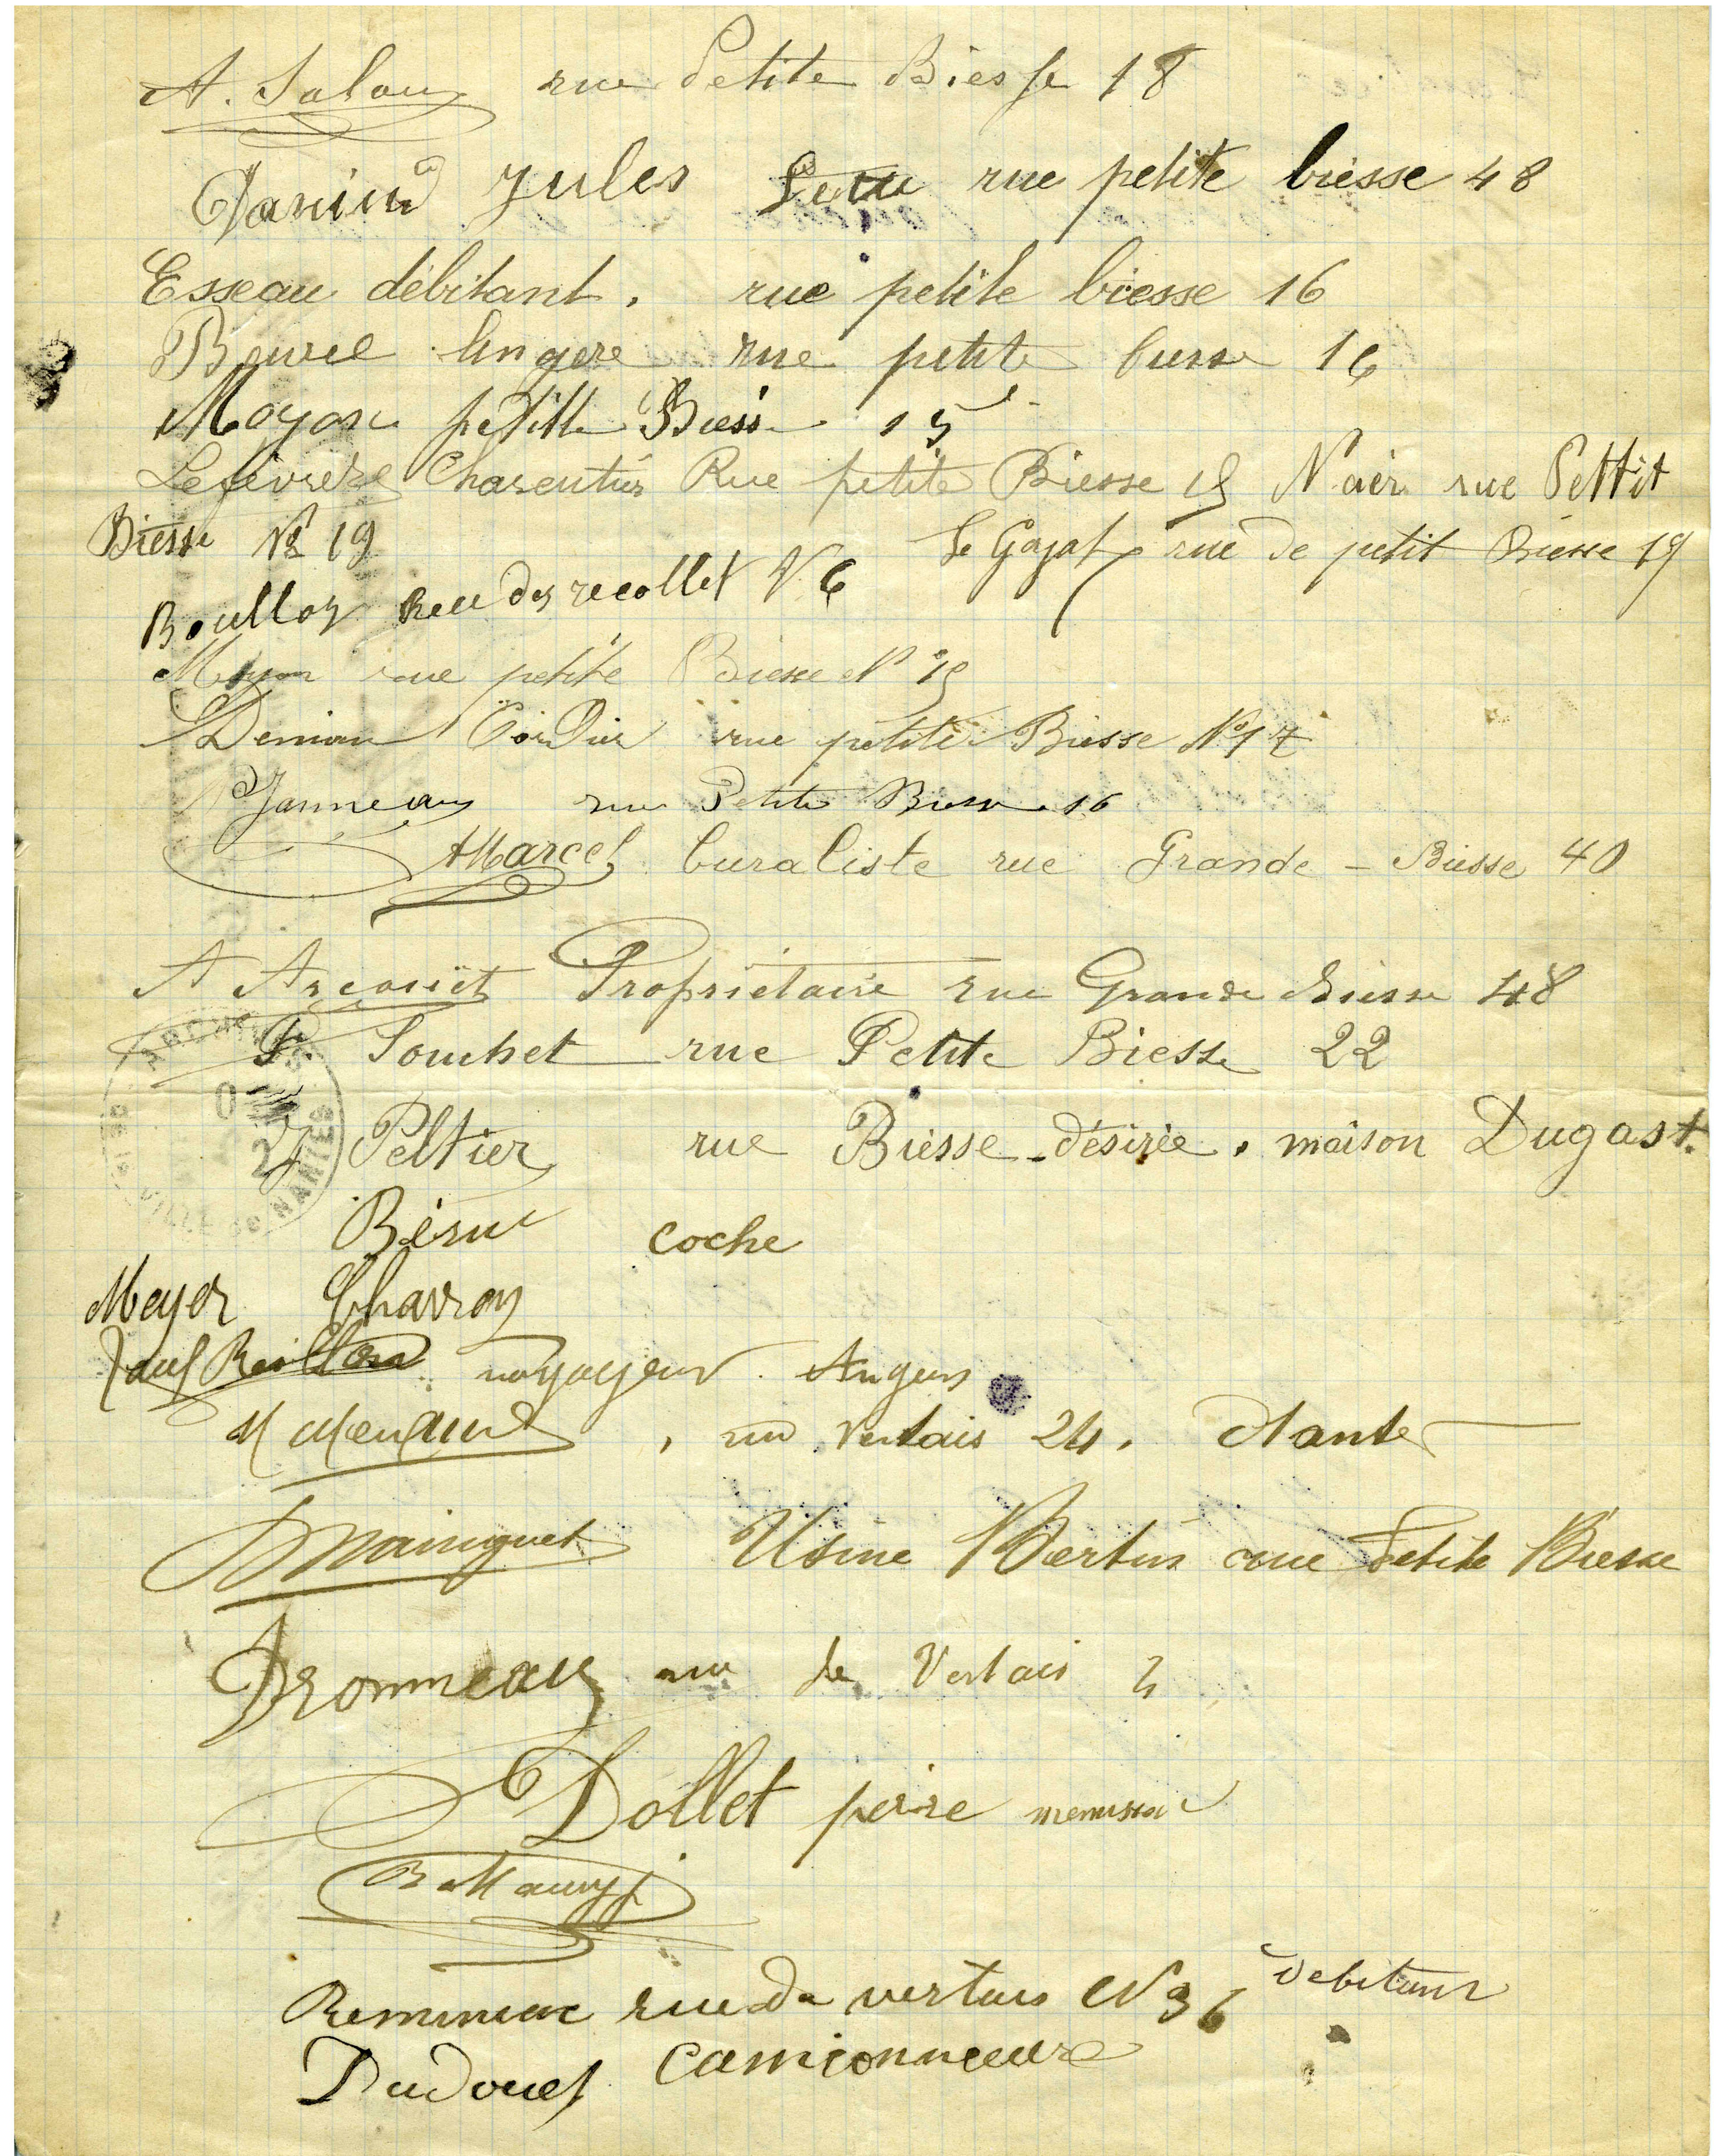 A. Salaun rue Petite Biesse 18
Jules rue petite biesse 48
Esseau débitant. rue petite biesse 16
lingere rue petite biesse 16
Moyon petitte Biess 15
Lefeuvre Charentier Rue petite Biesse 19 Noer rue Pettit
Biesse No 19 Le Gogal rue de petit Biesse 19
Boulloy Rue des recollet N 6
Moyon rue petite Biesse N° 19
Denian Cordier rue petite Biesse N° 17
Janneau rue Petite Biesse 16
AMarcel buraliste rue Grande - Biesse 40
A Arcouët Propriétaire rue Grande Biesse 48
P. Souchet rue Petite Biesse 22
J Peltier rue Biesse-désirée. maison Dugast.
coche
Meyer Charron
voyageur. Angers
M Menaud, rue Vertais 24. Nantes
Mainguet Usine Bertin rue Petite Biesse
Dronneau rue de Vertais 2
Dollet peire menuisier
rue de vertais N 36 debitant
Dudouet Camionneure
ARCHIVES DE LA VILLE DE NANTES